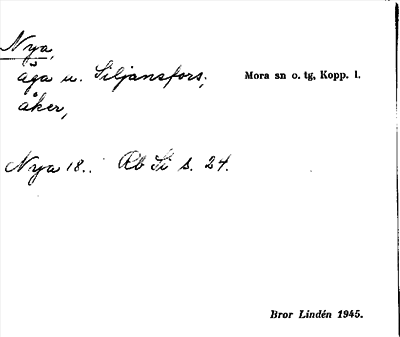 Nya,
äga u. Siljansfors; Mora sn o. tg, Kopp. l.
åker,
Nya 18.. Rb Si s. 24.
Bror Lindén 1945.